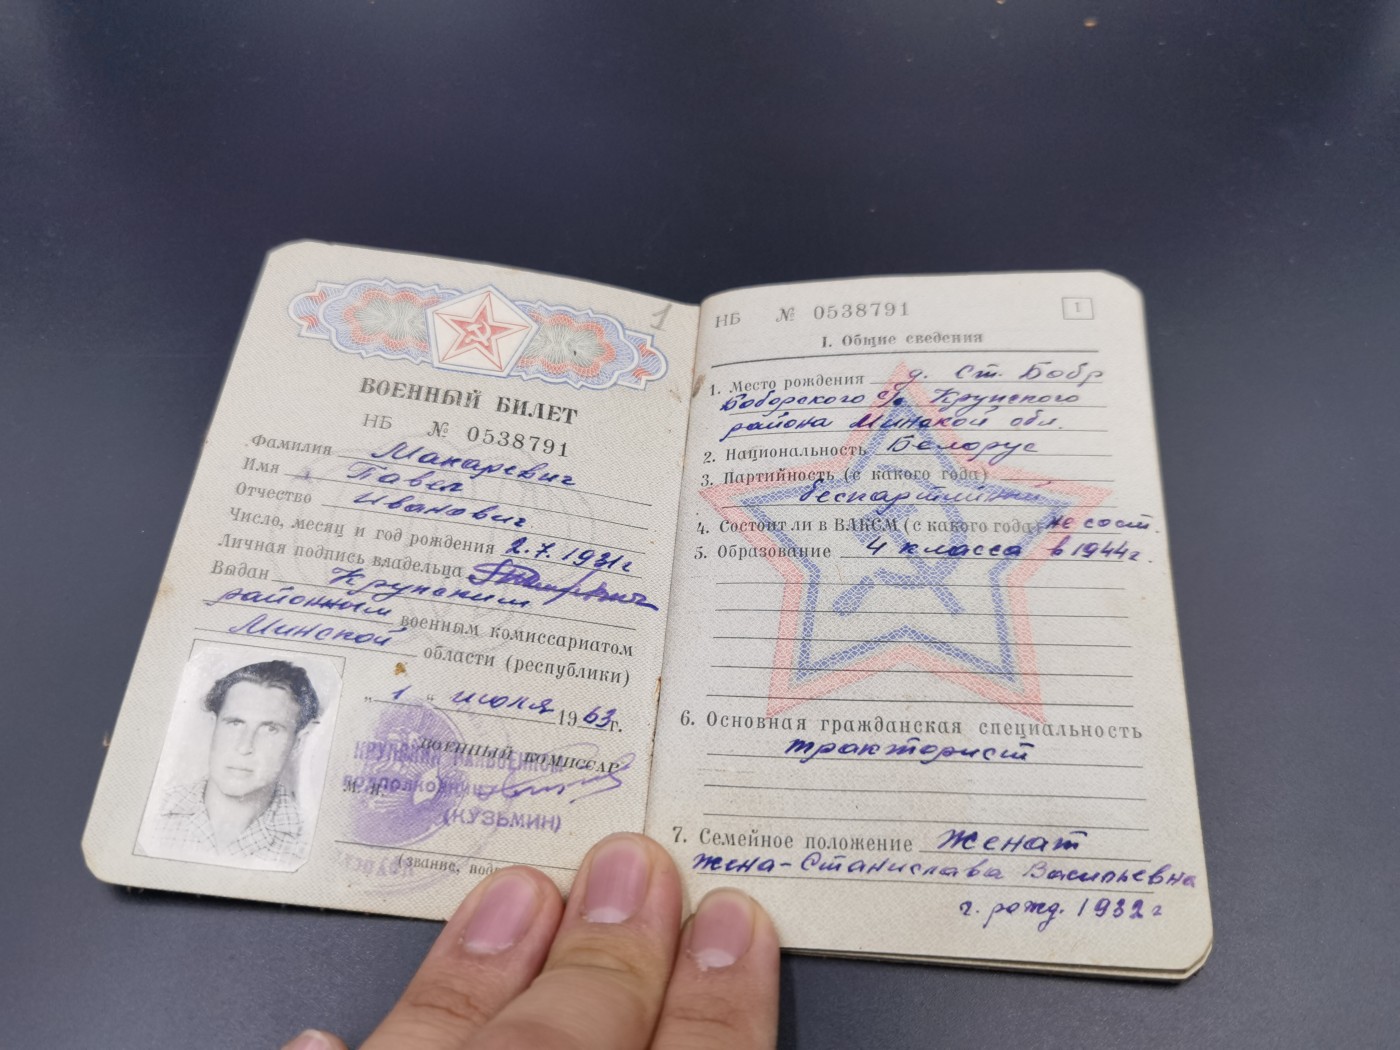 1
ВОЕННЫЙ БИЛЕТ
НБ № 0538791
Фамилия Макаревич
Имя Павел
Отчество Иванович
Число, месяц и год рождения 2.7.1931г
Личная подпись владельца
Выдан Крупским
районным военным комиссариатом
Минской области (республики)
„ 1 " июня 1963г.
ВОЕННЫЙ КОМИССАР
КРУПСКИЙ РАЙВОЕНКОМ
ПОДПОЛКОВНИК
М. П.
(КУЗЬМИН)
(звание,
НБ № 0538791
1
I. Общие сведения
1. Место рождения д. Ст. Бобр
Боборского с/с Крупского
района Минской обл.
2. Национальность Белорус
3. Партийность (с какого года)
беспартийный
4. Состоит ли в ВЛКСМ (с какого года) не сост.
5. Образование 4 класса в 1944г.
6. Основная гражданская специальность
тракторист
7. Семейное положение женат
жена-Станислава Васильевна
г. рожд. 1932г